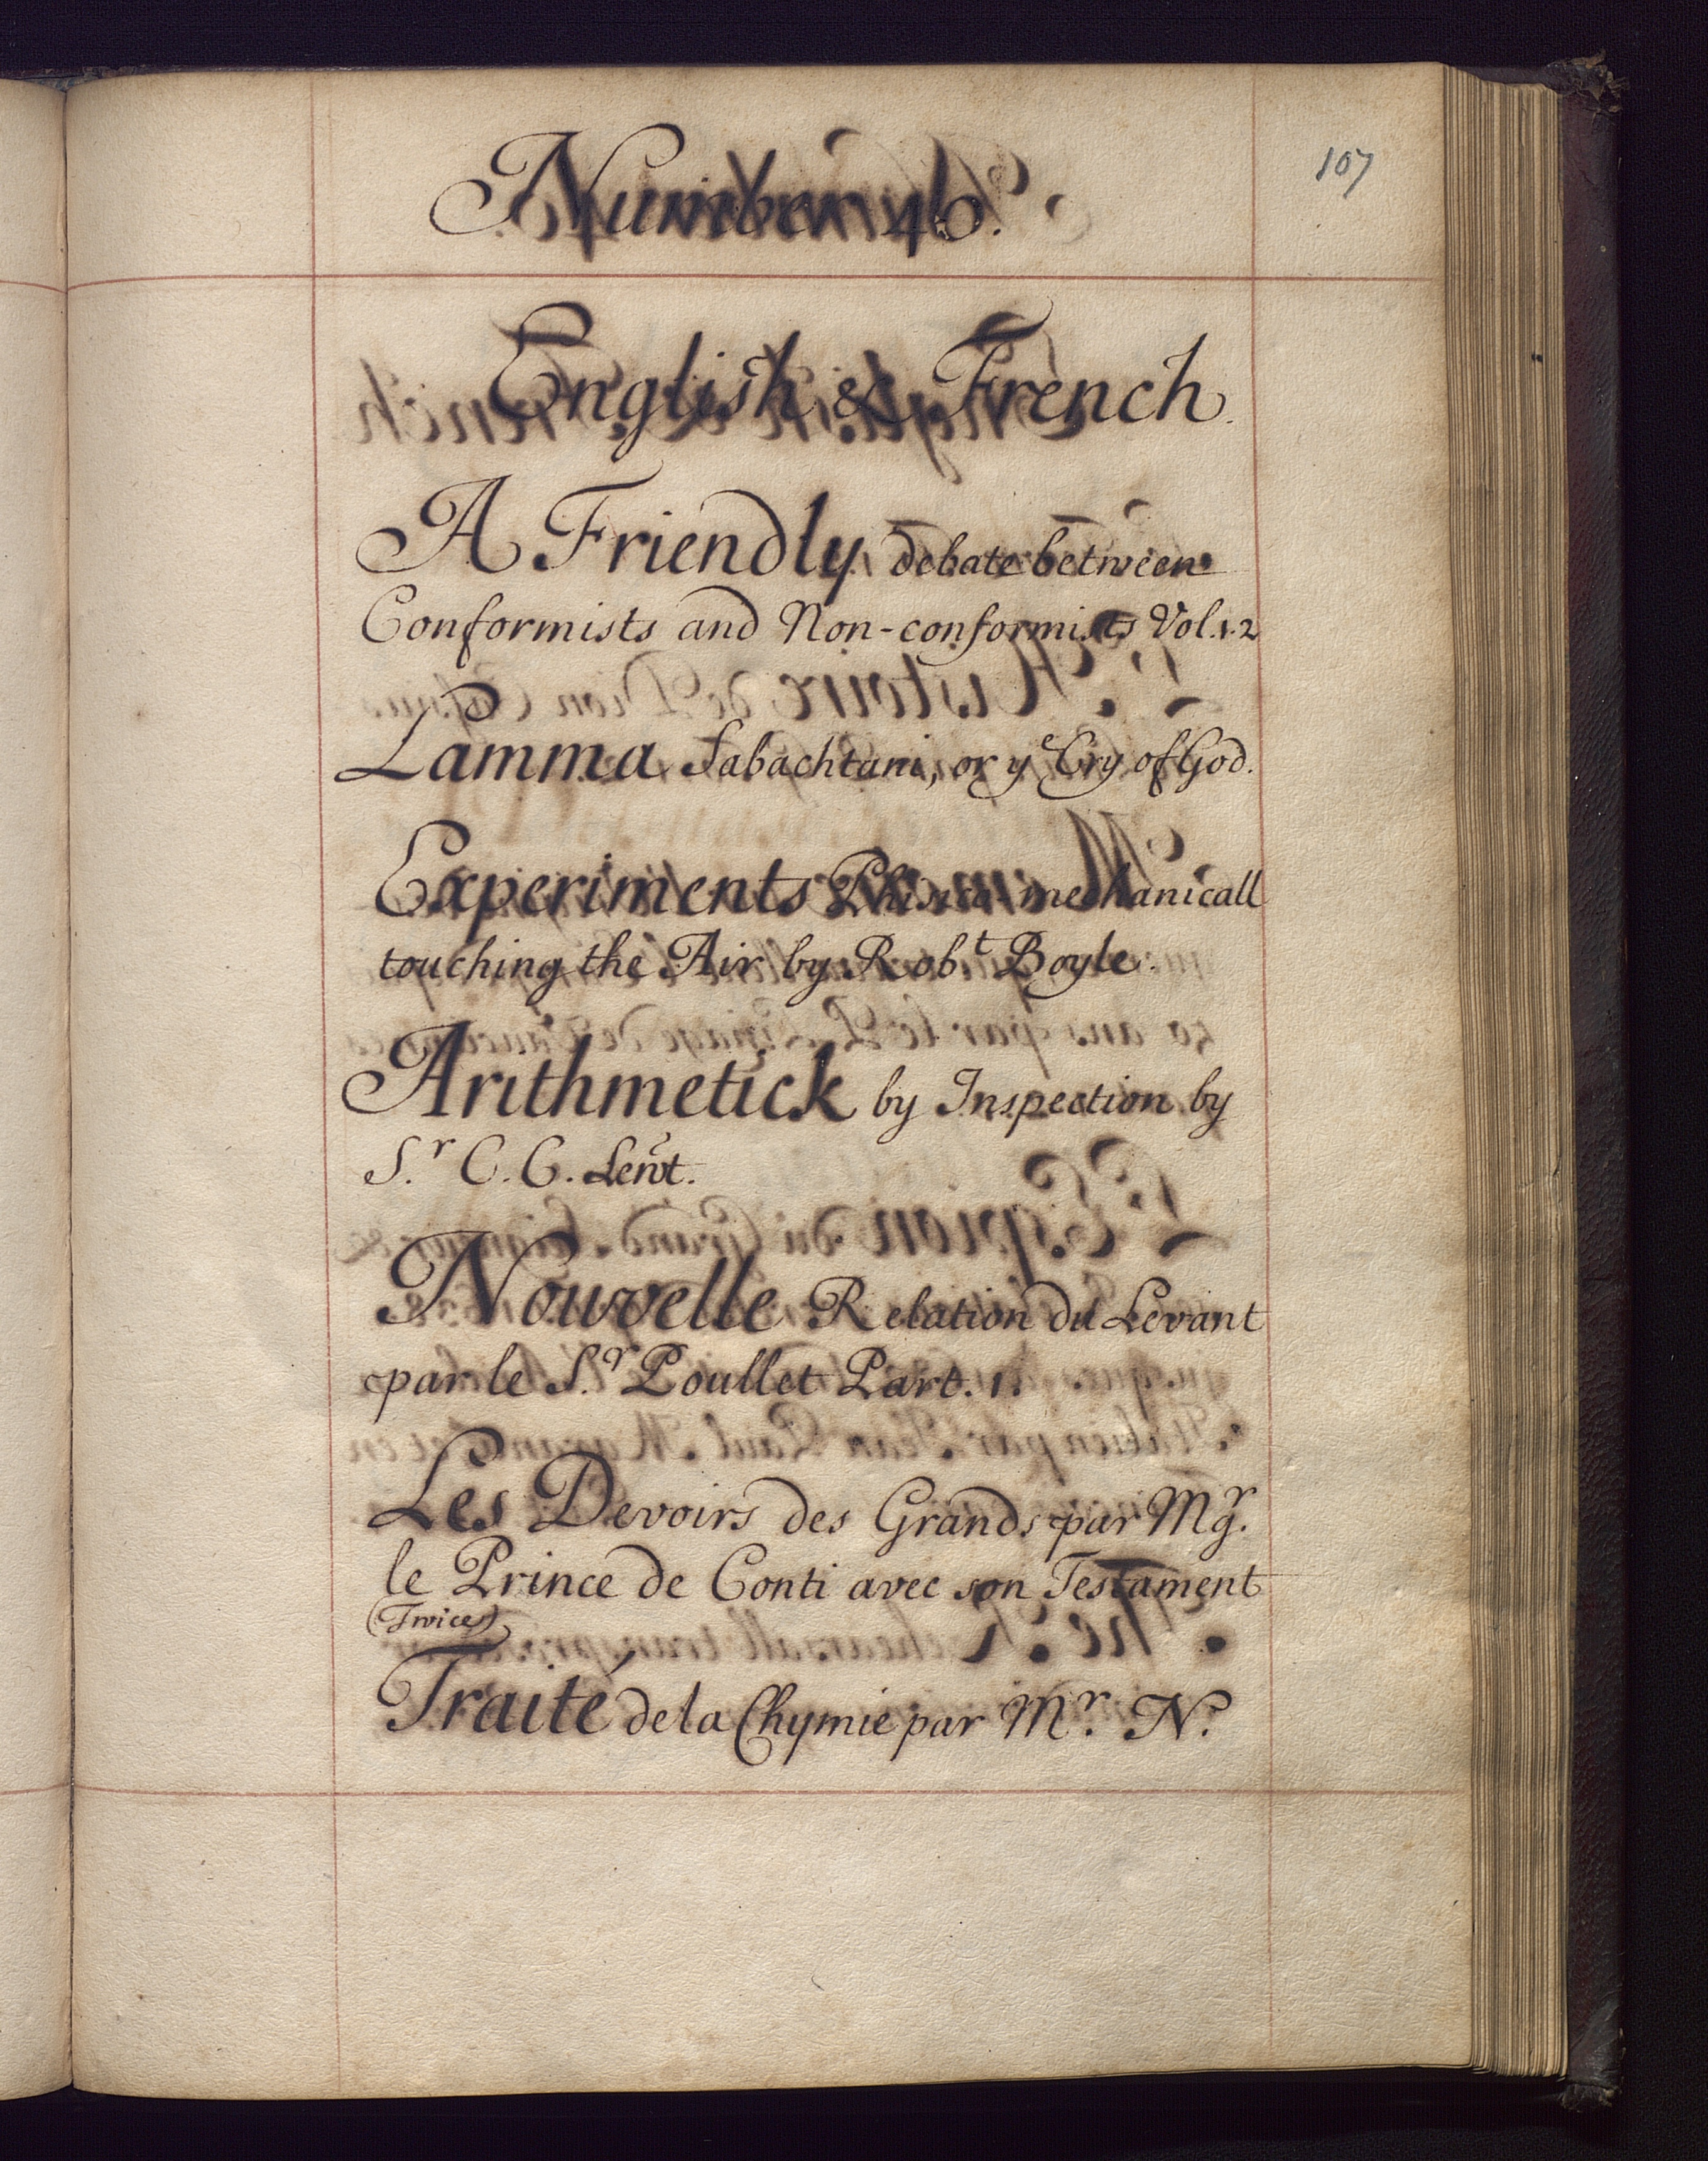 107
Number 46.
English & French.
A Friendly debate between
Conformists and Non-conformists Vol. 1. 2
Lamma sabachtani, or yᵉ Cry of God.
Experiments Phisico-mechanicall
touching the Air by Robᵗ Boyle.
Arithmetick by Inspection by
S.ʳ C. C.
Nouvelle Relation du Levant
par le S.ʳ Poullet Part. 1.
Les Devoirs des Grands par Mgʳ.
le Prince de Conti avec son Testament
(Twice)
Traité de la Chymie par Mʳ. N.